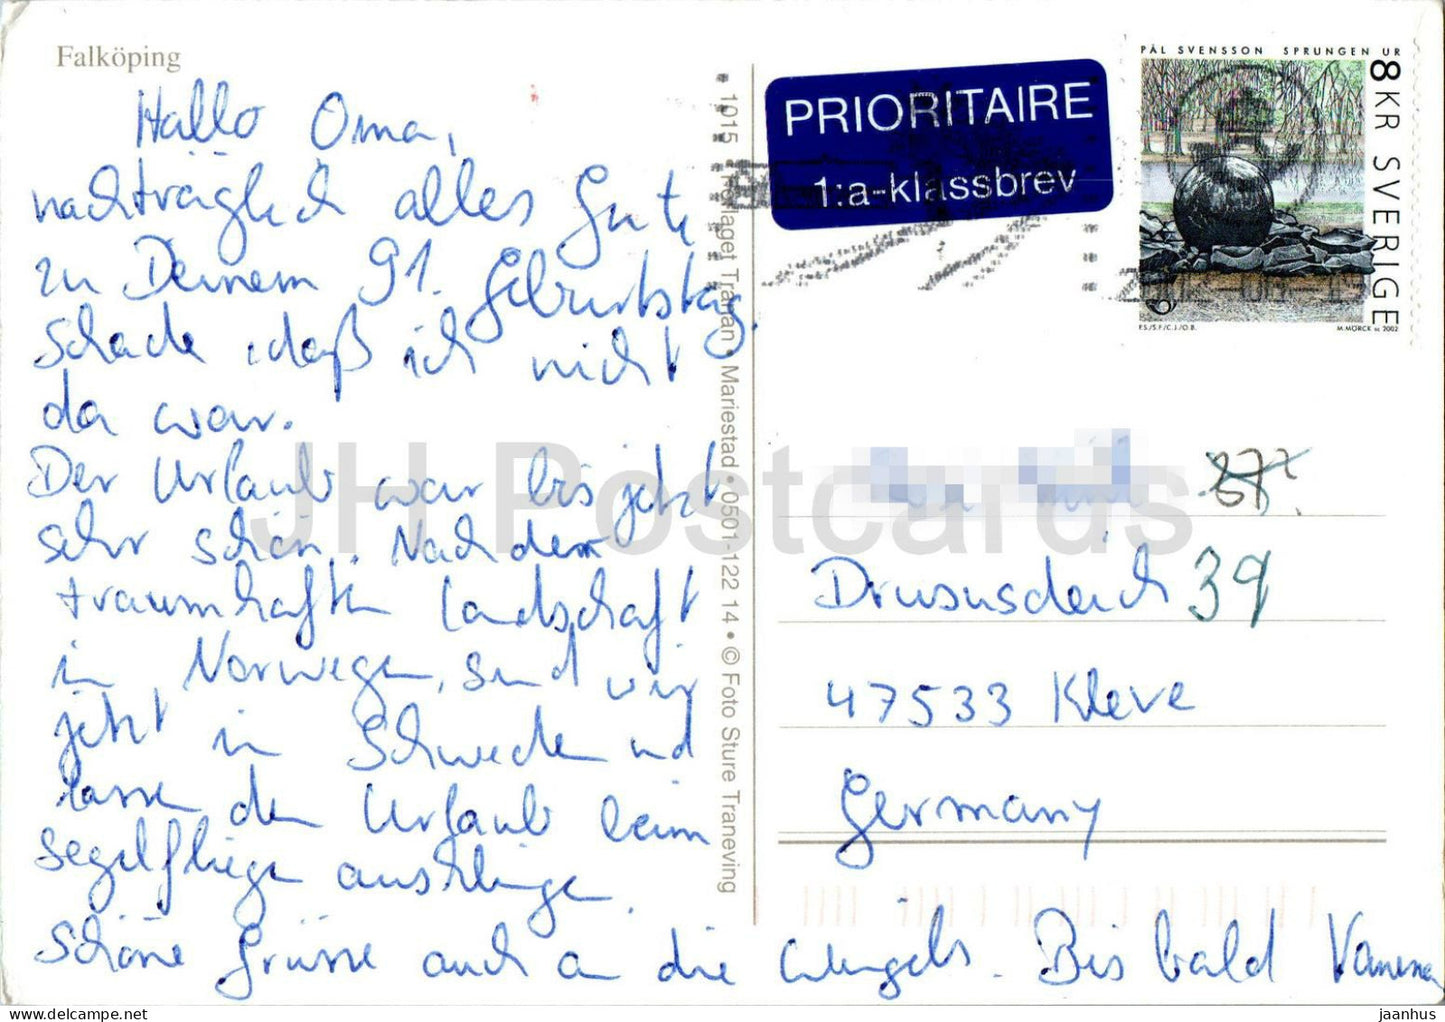 Falköping
Hallo Oma,
nachträglich alles Gute
zu Deinem 91. Geburtstag.
Schade, daß ich nicht
da war.
Der Urlaub war bis jetzt
sehr schön. Nach dem
traumhaften Landschaft
in Norwegen, sind wir
jetzt in Schweden und
lassen den Urlaub beim
Segelfliegen ausklingen.
Schöne Grüsse auch an die
Bis bald Vanessa
1015 • Förlaget Tranan • Mariestad • 0501-122 14 • © Foto Sture Traneving
PRIORITAIRE
1:a-klassbrev
PÅL SVENSSON SPRUNGEN UR
8 KR SVERIGE
P.S./S.F./C.J./O.B.
M.MÖRCK sc 2002
37?
Drususdeich 39
47533 Kleve
Germany
JH Postcards
jaanhus